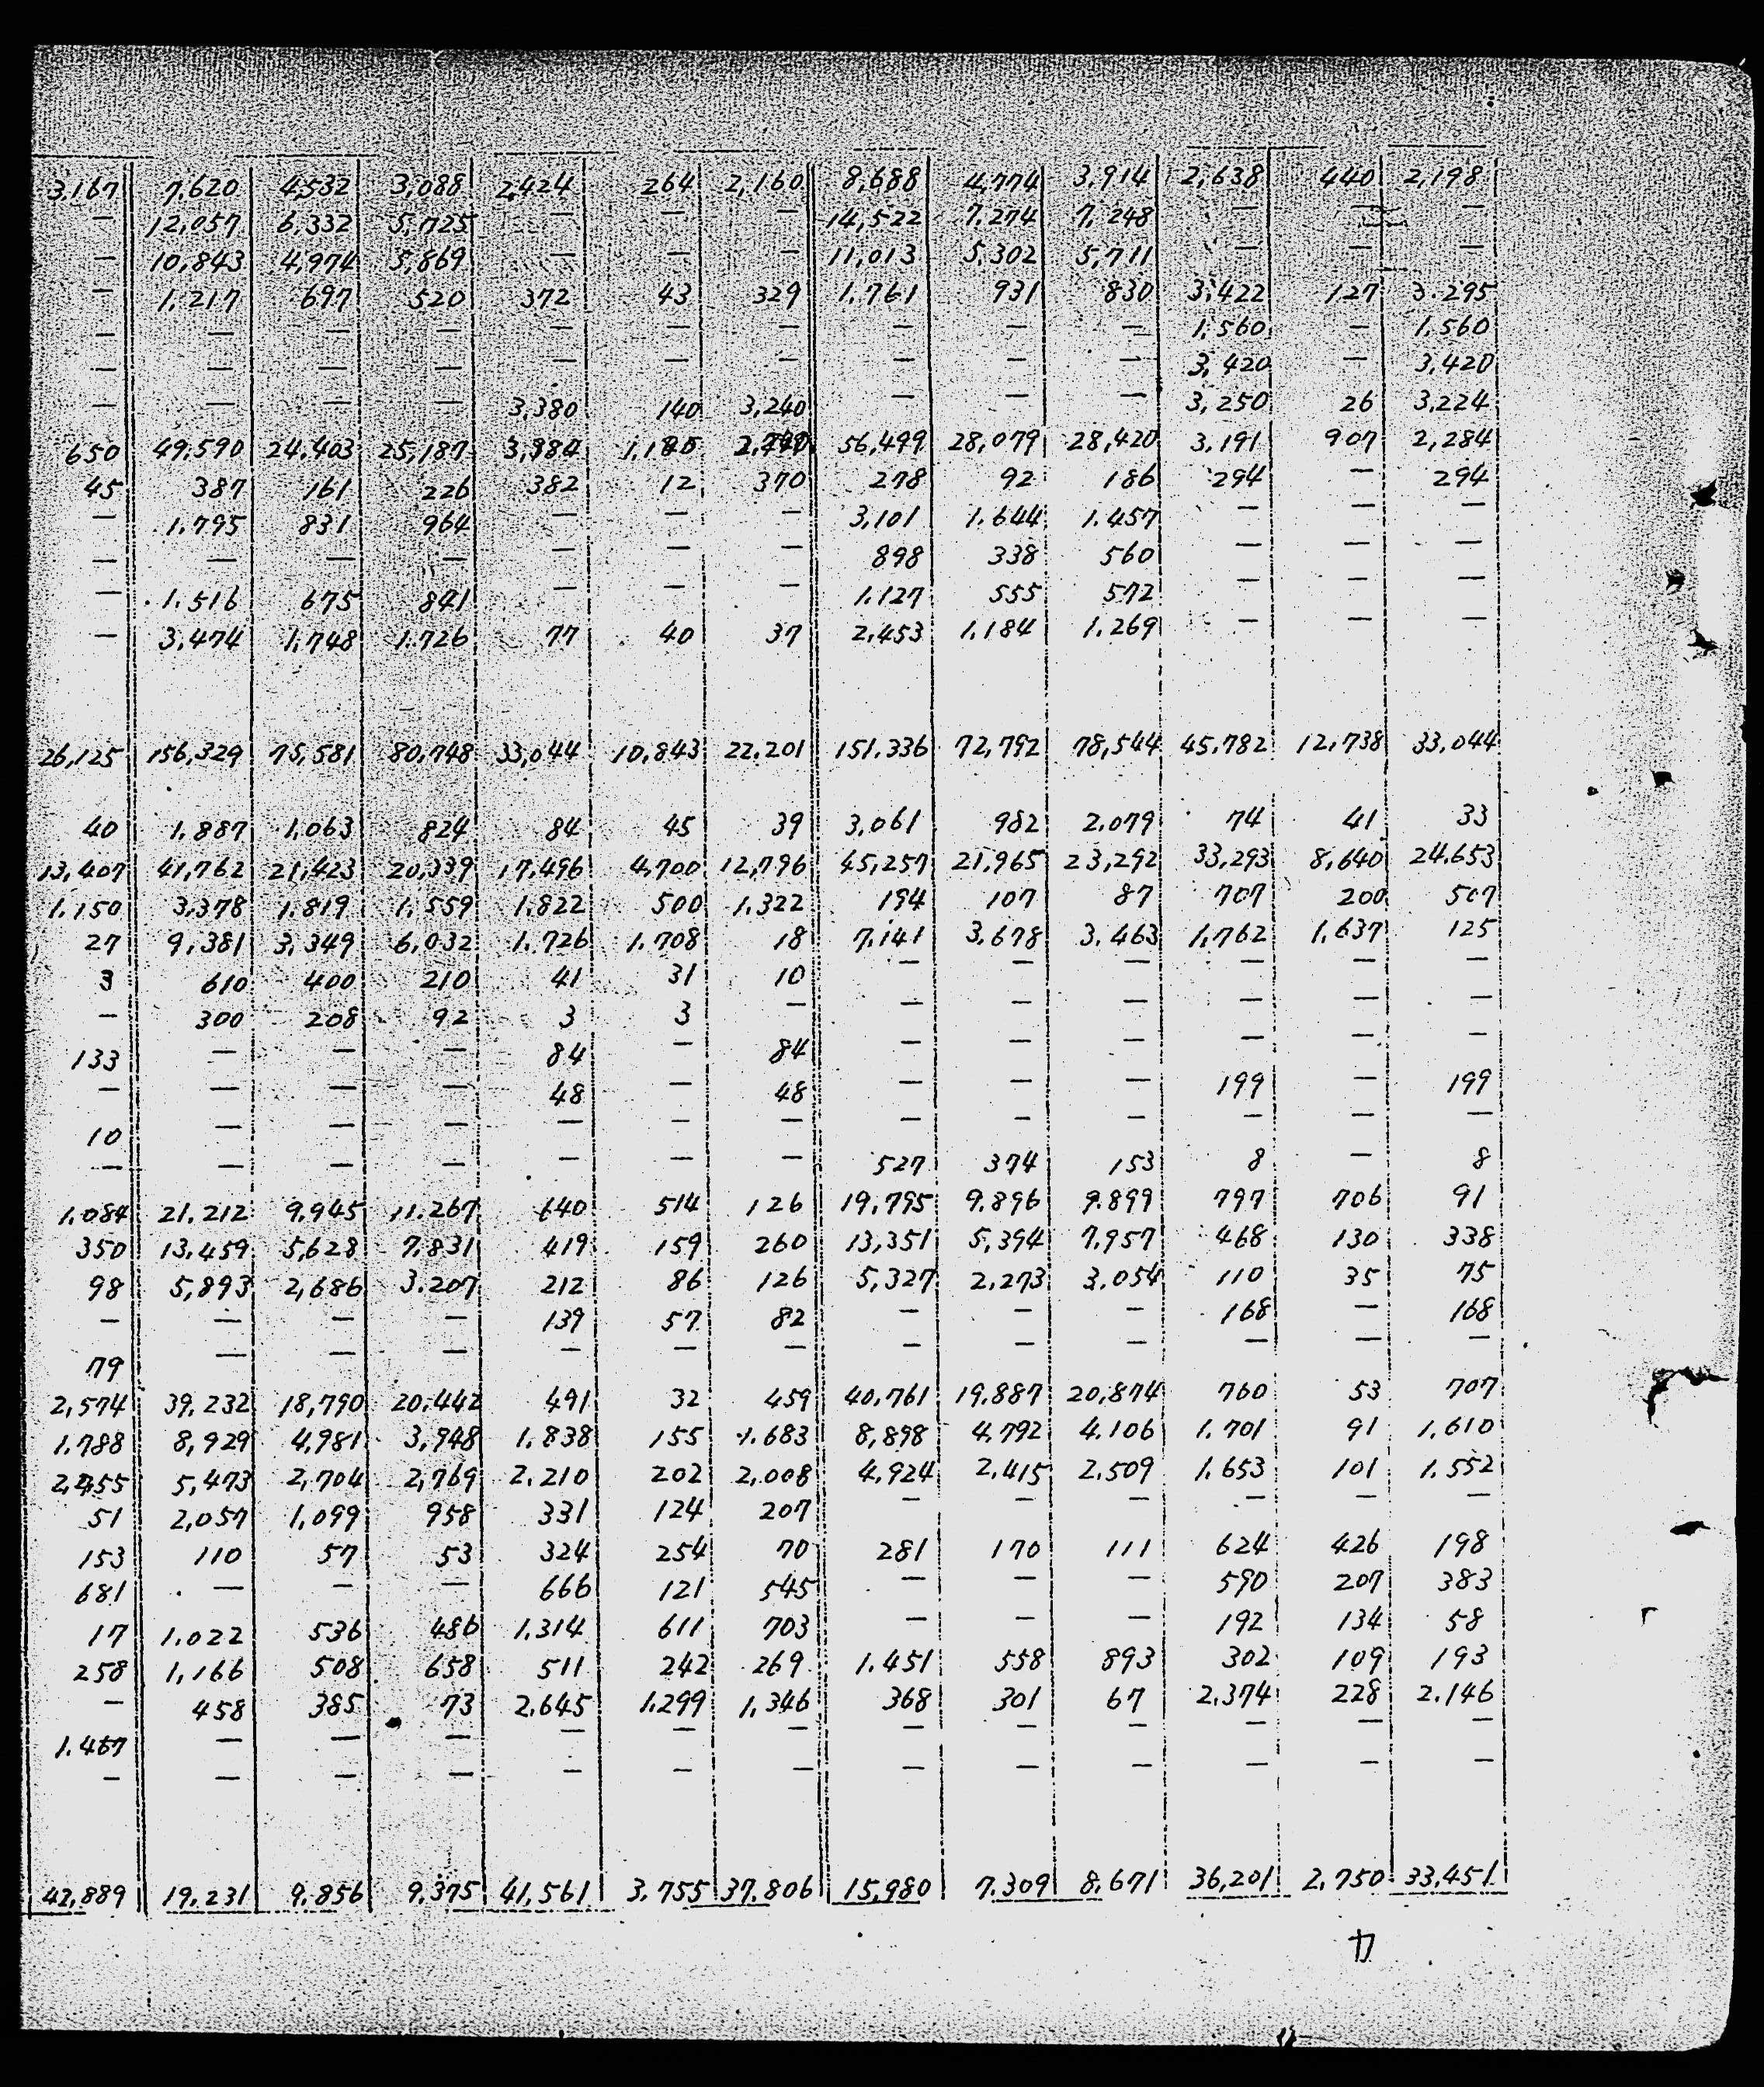 3,167 7,620 4,532 3,088 2,424 264 2,160 8,688 4,774 3,914 2,638 440 2,198
— 12,057 6,332 5,725 — — — 14,522 7,274 7,248 — — —
— 10,843 4,974 5,869 — — — 11,013 5,302 5,711 — — —
— 1,217 697 520 372 43 329 1,761 931 830 3,422 127 3.295
— — — — — — — — — — 1,560 — 1,560
— — — — — — — — — — 3,420 — 3,420
— — — — 3,380 140 3,240 — — — 3,250 26 3,224
650 49,590 24,403 25,187 56,499 28,079 28,420 3,191 907 2,284
45 387 161 226 382 12 370 278 92 186 294 — 294
— 1,795 831 964 — — — 3,101 1.644 1.457 — — —
— — — — — — — 898 338 560 — — —
— 1,516 675 841 — — — 1.127 555 572 — — —
— 3,474 1,748 1.726 77 40 37 2,453 1,184 1,269 — — —
26,125 156,329 75,581 80,748 33,044 10,843 22,201 151,336 72,792 78,544 45,782 12,738 33,044
40 1,887 1,063 824 84 45 39 3,061 982 2.079 74 41 33
13,407 41,762 21,423 20,339 17,496 4,700 12,796 45,257 21,965 23,292 33,293 8,640 24,653
1,150 3,378 1,819 1,559 1,822 500 1,322 194 107 87 707 200 507
27 9,381 3,349 6,032 1,726 1,708 18 7,141 3,678 3,463 1,762 1,637 125
3 610 400 210 41 31 10 — — — — — —
— 300 208 92 3 3 — — — — — — —
133 — — — 84 — 84 — — — — — —
— — — — 48 — 48 — — — 199 — 199
10 — — — — — — — — — — — —
— — — — — — — 527 374 153 8 — 8
1,084 21,212 9,945 11,267 640 514 126 19,795 9,896 9,899 797 706 91
350 13,459 5,628 7,831 419 159 260 13,351 5,394 7,957 468 130 338
98 5,893 2,686 3.207 212 86 126 5,327 2,273 3,054 110 35 75
— — — — 139 57 82 — — — 168 — 168
79 — — — — — — — — — — — —
2,574 39,232 18,790 20,442 491 32 459 40,761 19.887 20,874 760 53 707
1.788 8,929 4,981 3,948 1.838 155 1.683 8,898 4.792 4.106 1.701 91 1,610
2,455 5,473 2,704 2,769 2,210 202 2,008 4,924 2,415 2,509 1.653 101 1.552
51 2,057 1,099 958 331 124 207 — — — — — —
153 110 57 53 324 254 70 281 170 111 624 426 198
681 — — — 666 121 545 — — — 590 207 383
17 1.022 536 486 1,314 611 703 — — — 192 134 58
258 1,166 508 658 511 242 269 1.451 558 893 302 109 193
— 458 385 73 2.645 1.299 1,346 368 301 67 2.374 228 2.146
1.467 — — — — — — — — — — — —
— — — — — — — — — — — — —
42,889 19,231 9.856 9,375 41,561 3.755 37,806 15,980 7.309 8,671 36,201 2,750 33,451